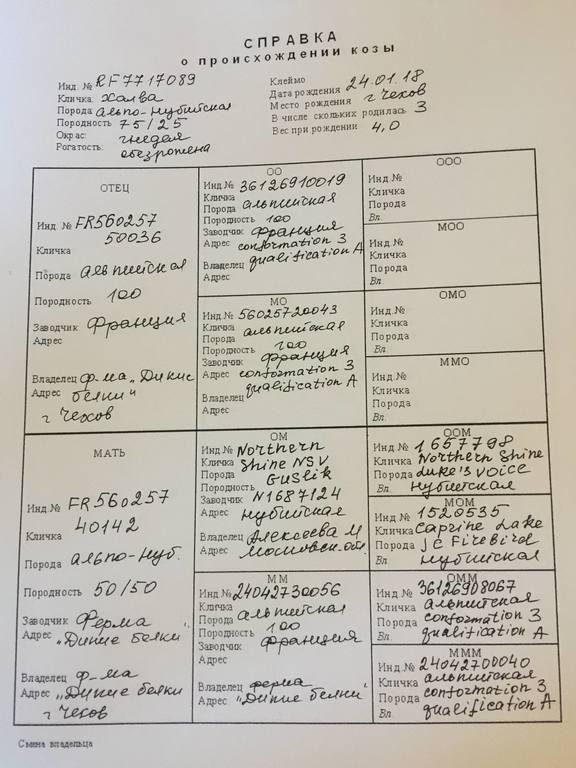 СПРАВКА
о происхождении козы
Инд. № RF7717089
Кличка Халва
Порода альпо-нубийская
Породность 75/25
Окрас: гнедая
Рогатость: обезрожена
Клеймо
Дата рождения 24.01.18
Место рождения г Чехов
В числе скольких родилась 3
Вес при рождении 4,0
ОТЕЦ
Инд. № FR560257
50036
Кличка
Порода альпийская
Породность 100
Заводчик Франция
Адрес
Владелец ф-ма „Дикие
Адрес белки"
г Чехов
ОО
Инд.№ 36126910019
Кличка
Порода альпийская
Породность 100
Заводчик Франция
Адрес conformation 3
Владелец qualification A
Адрес
МО
Инд № 56025720043
Кличка альпийская
Порода
Породность 100
Заводчик Франция
Адрес conformation 3
qualification A
Владелец
Адрес
ООО
Инд.№
Кличка
Порода
Вл.
МОО
Инд.№
Кличка
Порода
Вл.
ОМО
Инд.№
Кличка
Порода
Вл.
ММО
Инд.№
Кличка
Порода
Вл.
МАТЬ
Инд № FR560257
40142
Кличка
Порода альпо-нуб.
Породность 50/50
Заводчик Ферма
Адрес „Дикие белки"
Владелец ф-ма
Адрес „Дикие белки
г Чехов
ОМ
Инд № Northern
Кличка Shine NSV
Порода Guslik
Породность
Заводчик N1687124
Адрес Нубийская
Владелец Алексеева М
Адрес Московск.обл.
ММ
Инд.№ 24042730056
Кличка
Порода альпийская
Породность 100
Заводчик Франция
Адрес
Владелец ферма
Адрес „Дикие белки"
ООМ
Инд.№ 1657798
Кличка Northern Shine
Порода Luke's Voice
Вл. Нубийская
МОМ
Инд № 1520535
Кличка Caprine Lake
Порода JC Firebird
Вл. Нубийская
ОММ
Инд № 36126908067
Кличка альпийская
Порода conformation 3
Вл. qualification A
МММ
Инд.№ 24042700040
Кличка альпийская
Порода conformation 3
Вл qualification A
Смена владельца